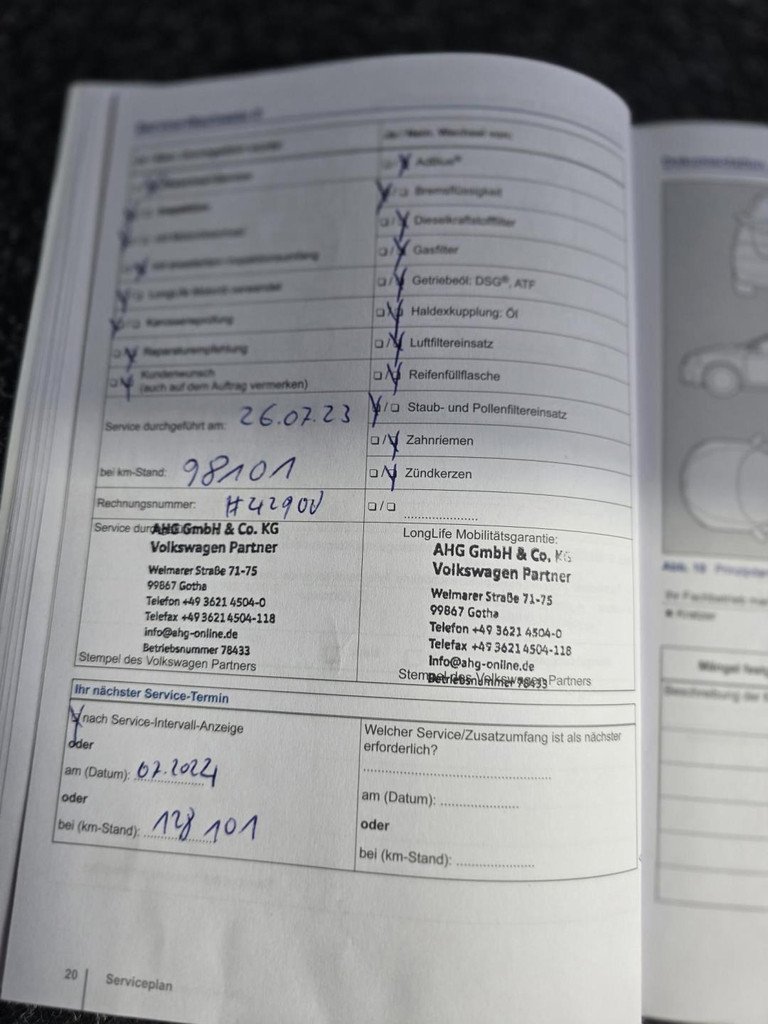 AdBlue®
Bremsflüssigkeit
Dieselkraftstofffilter
Gasfilter
Getriebeöl: DSG®, ATF
Haldexkupplung: Öl
Luftfiltereinsatz
Reifenfüllflasche
Staub- und Pollenfiltereinsatz
Zahnriemen
Zündkerzen
Inspektion
Karosserieprüfung
Reparaturempfehlung
Kundenwunsch
(auch auf dem Auftrag vermerken)
Service durchgeführt am: 26.07.23
bei km-Stand: 98101
Rechnungsnummer:
Service
AHG GmbH & Co. KG
Volkswagen Partner
Weimarer Straße 71-75
99867 Gotha
Telefon +49 3621 4504-0
Telefax +49 3621 4504-118
info@ahg-online.de
Betriebsnummer 78433
Stempel des Volkswagen Partners
LongLife Mobilitätsgarantie:
AHG GmbH & Co. KG
Volkswagen Partner
Weimarer Straße 71-75
99867 Gotha
Telefon +49 3621 4504-0
Telefax +49 3621 4504-118
Info@ahg-online.de
Betriebsnummer 78433
Stempel des Volkswagen Partners
Ihr nächster Service-Termin
nach Service-Intervall-Anzeige
oder
am (Datum): 07.2024
oder
bei (km-Stand): 128 101
Welcher Service/Zusatzumfang ist als nächster
erforderlich?
am (Datum):
oder
bei (km-Stand):
20 Serviceplan